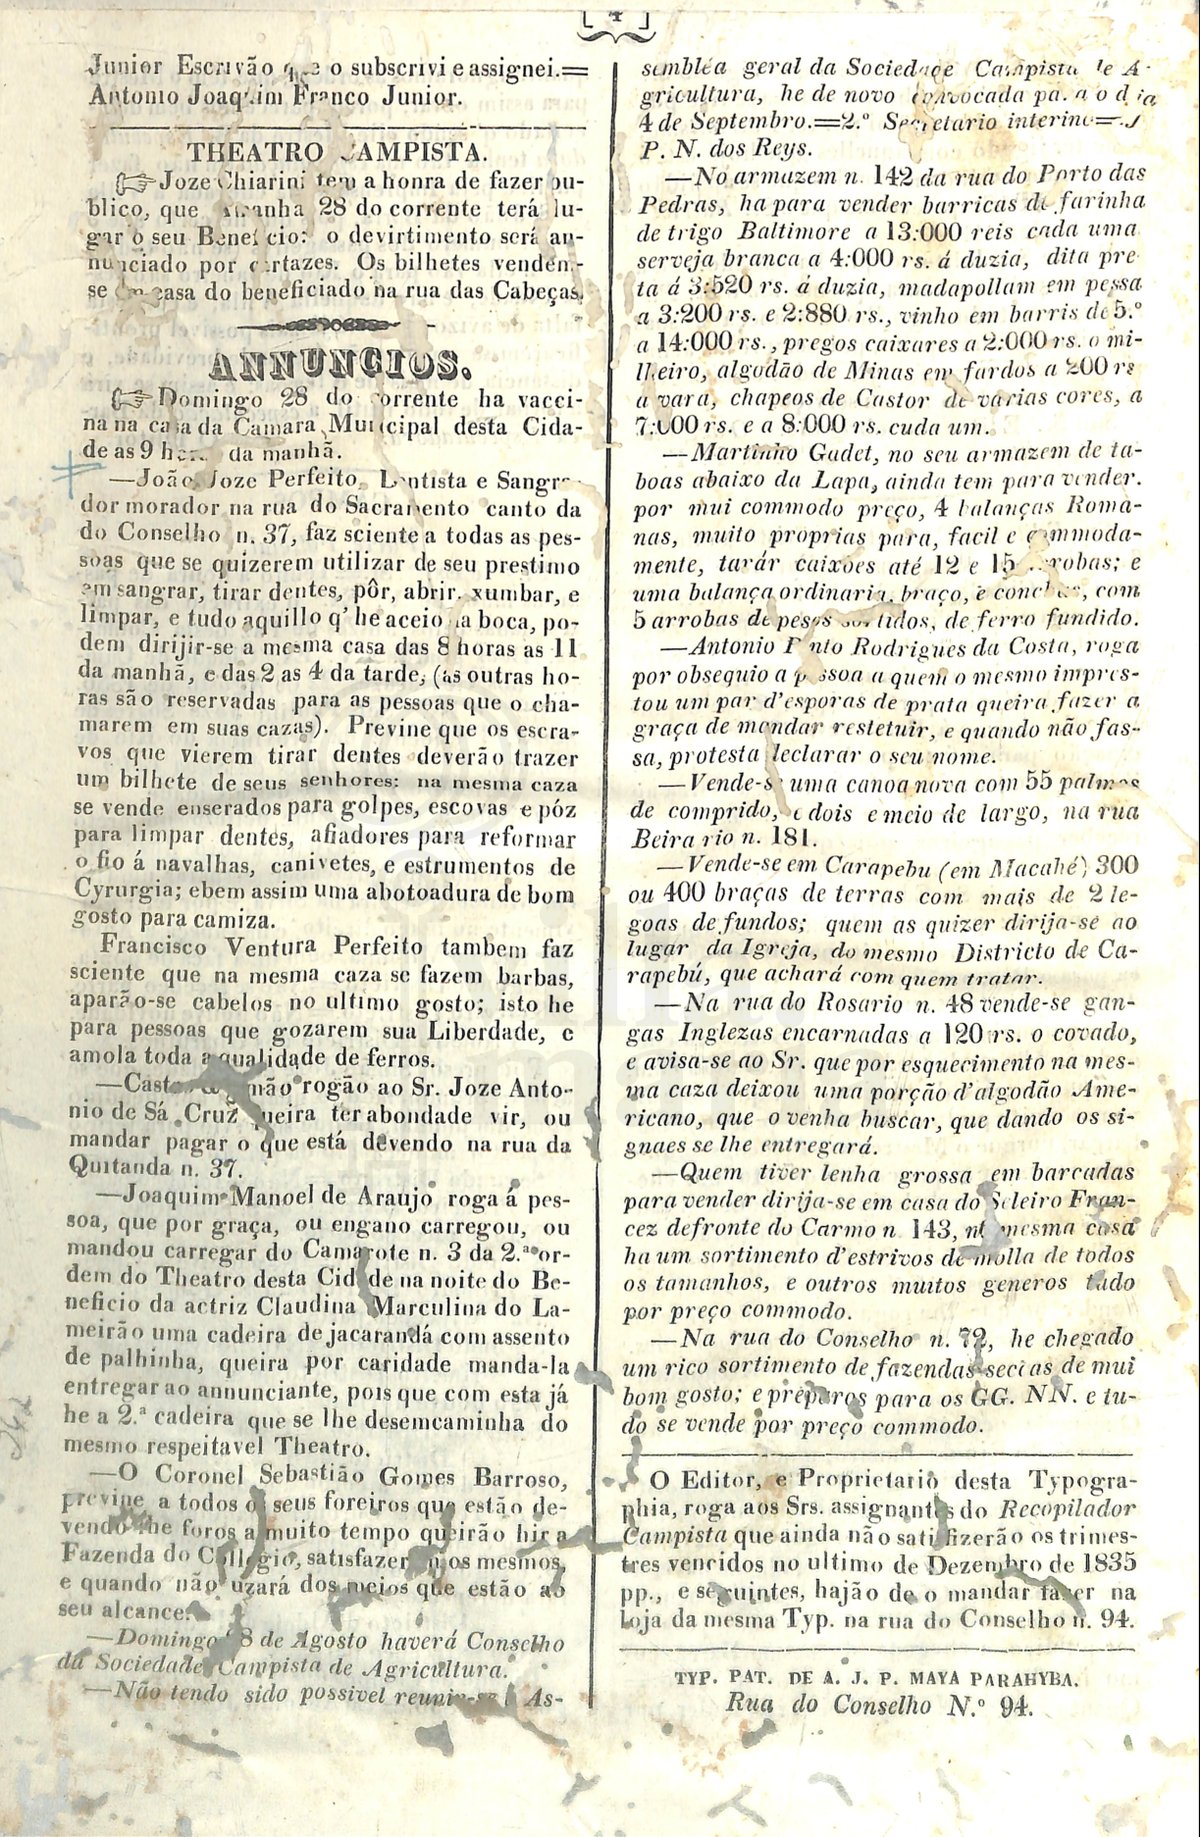 [ 4 ]
Junior Escrivão que o subscrivi e assignei.=
Antonio Joaquim Franco Junior.
THEATRO CAMPISTA.
Joze Chiarini tem a honra de fazer pu-
blico, que 28 do corrente terá lu-
gar o seu Beneficio: o devirtimento será an-
nunciado por cartazes. Os bilhetes vendem-
se em casa do beneficiado na rua das Cabeças.
ANNUNCIOS.
Domingo 28 do corrente ha vacci-
na na casa da Camara Municipal desta Cida-
de as 9 horas da manhã.
—João Joze Perfeito, Dentista e Sangra-
dor morador na rua do Sacramento canto da
do Conselho n. 37, faz sciente a todas as pes-
soas que se quizerem utilizar de seu prestimo
em sangrar, tirar dentes, pôr, abrir, xumbar, e
limpar, e tudo aquillo q' he aceio da boca, po-
dem dirijir-se a mesma casa das 8 horas as 11
da manhã, e das 2 as 4 da tarde, (as outras ho-
ras são reservadas para as pessoas que o cha-
marem em suas cazas). Previne que os escra-
vos que vierem tirar dentes deverão trazer
um bilhete de seus senhores: na mesma caza
se vende enserados para golpes, escovas e póz
para limpar dentes, afiadores para reformar
o fio á navalhas, canivetes, e estrumentos de
Cyrurgia; e bem assim uma abotoadura de bom
gosto para camiza.
Francisco Ventura Perfeito tambem faz
sciente que na mesma caza se fazem barbas,
aparão-se cabelos no ultimo gosto; isto he
para pessoas que gozarem sua Liberdade, e
amola toda a qualidade de ferros.
—Castro & Irmão rogão ao Sr. Joze Anto-
nio de Sá Cruz queira ter abondade vir, ou
mandar pagar o que está devendo na rua da
Quitanda n. 37.
—Joaquim Manoel de Araujo roga á pes-
soa, que por graça, ou engano carregou, ou
mandou carregar do Camarote n. 3 da 2.ª or-
dem do Theatro desta Cidade na noite do Be-
neficio da actriz Claudina Marculina do La-
meirão uma cadeira de jacarandá com assento
de palhinha, queira por caridade manda-la
entregar ao annunciante, pois que com esta já
he a 2.ª cadeira que se lhe desemcaminha do
mesmo respeitavel Theatro.
—O Coronel Sebastião Gomes Barroso,
previne a todos os seus foreiros que estão de-
vendo lhe foros a muito tempo queirão hir a
Fazenda do Collegio, satisfazerem os mesmos,
e quando não uzará dos meios que estão ao
seu alcance.
—Domingo 28 de Agosto haverá Conselho
da Sociedade Campista de Agricultura.
—Não tendo sido possivel reunir-se a As-
sembléa geral da Sociedade Campista de A-
gricultura, he de novo convocada para o dia
4 de Septembro.=2.º Secretario interino=J.
P. N. dos Reys.
—No armazem n. 142 da rua do Porto das
Pedras, ha para vender barricas de farinha
de trigo Baltimore a 13:000 reis cada uma
serveja branca a 4:000 rs. á duzia, dita pre
ta á 3:520 rs. á duzia, madapollam em pessa
a 3:200 rs. e 2:880 rs., vinho em barris de 5.º
a 14:000 rs., pregos caixares a 2:000 rs. o mi-
lheiro, algodão de Minas em fardos a 200 rs
a vara, chapeos de Castor de varias cores, a
7:000 rs. e a 8:000 rs. cada um.
—Martinho Gudet, no seu armazem de ta-
boas abaixo da Lapa, ainda tem para vender.
por mui commodo preço, 4 balanças Roma-
nas, muito proprias para, facil e commoda-
mente, tarár caixões até 12 e 15 arrobas; e
uma balança ordinaria, braço, e conchas, com
5 arrobas de pesos sortidos, de ferro fundido.
—Antonio Pinto Rodrigues da Costa, roga
por obsequio a pessoa a quem o mesmo impres-
tou um par d'esporas de prata queira fazer a
graça de mandar restetuir, e quando não fas-
sa, protesta declarar o seu nome.
—Vende-se uma canoa nova com 55 palmos
de comprido, e dois e meio de largo, na rua
Beira rio n. 181.
—Vende-se em Carapebu (em Macahé) 300
ou 400 braças de terras com mais de 2 le-
goas de fundos; quem as quizer dirija-se ao
lugar da Igreja, do mesmo Districto de Ca-
rapebú, que achará com quem tratar.
—Na rua do Rosario n. 48 vende-se gan-
gas Inglezas encarnadas a 120 rs. o covado,
e avisa-se ao Sr. que por esquecimento na mes-
ma caza deixou uma porção d'algodão Ame-
ricano, que o venha buscar, que dando os si-
gnaes se lhe entregará.
—Quem tiver lenha grossa em barcadas
para vender dirija-se em casa do Seleiro Fran-
cez defronte do Carmo n. 143, na mesma casa
ha um sortimento d'estrivos de molla de todos
os tamanhos, e outros muitos generos tudo
por preço commodo.
—Na rua do Conselho n. 72, he chegado
um rico sortimento de fazendas seccas de mui
bom gosto; e préparos para os GG. NN. e tu-
do se vende por preço commodo.
O Editor, e Proprietario desta Typogra-
phia, roga aos Srs. assignantes do Recopilador
Campista que ainda não satisfizerão os trimes-
tres vencidos no ultimo de Dezembro de 1835
pp., e seguintes, hajão de o mandar fazer na
Loja da mesma Typ. na rua do Conselho n. 94.
TYP. PAT. DE A. J. P. MAYA PARAHYBA.
Rua do Conselho N.º 94.